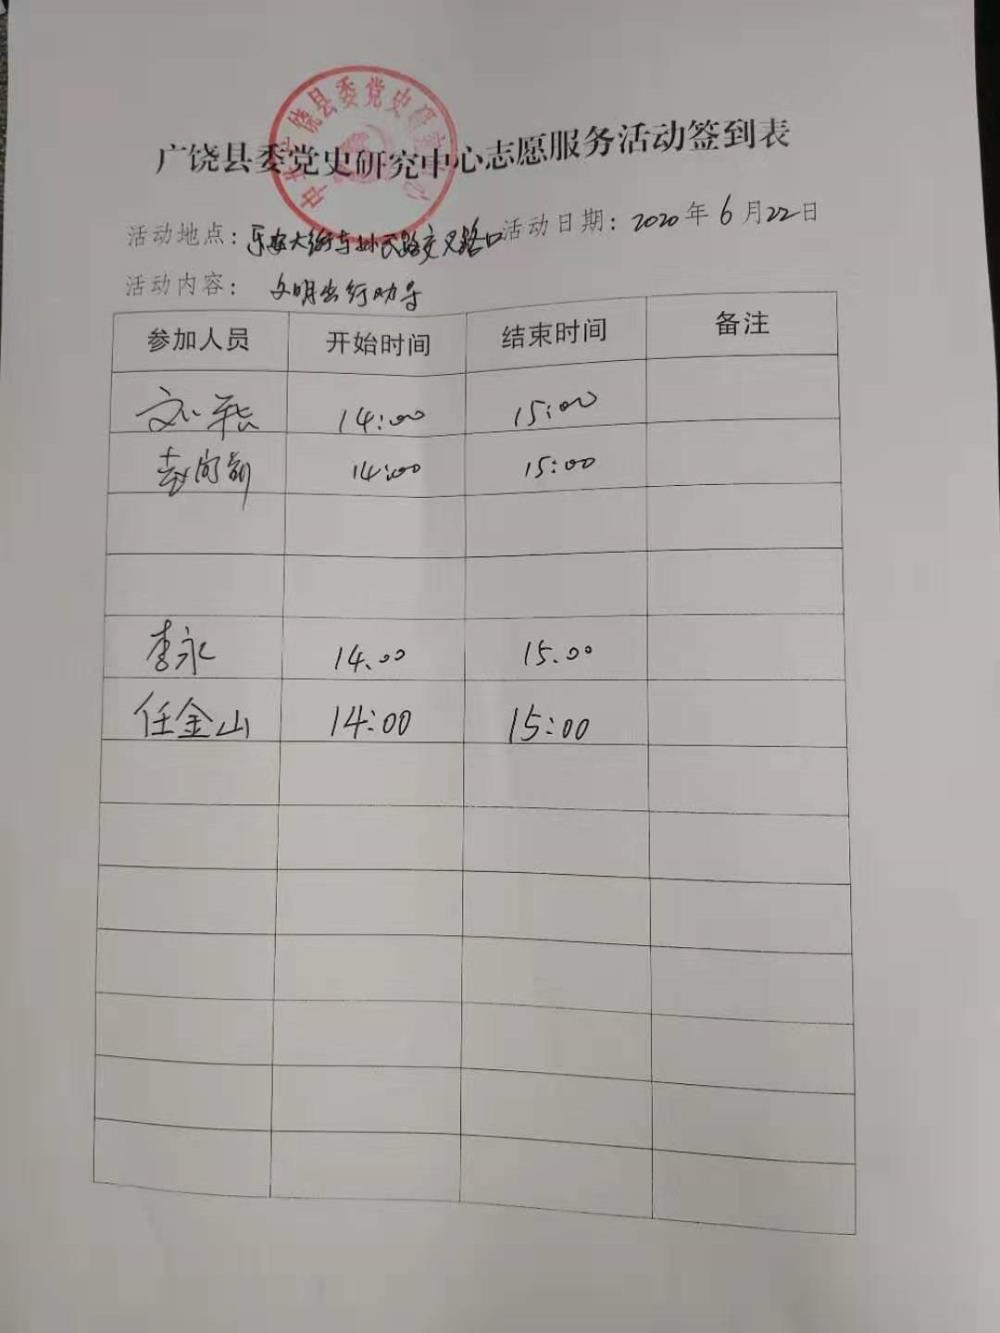 中共广饶县委党史研究中心
广饶县委党史研究中心志愿服务活动签到表
活动地点：乐安大街与孙武路交叉路口 活动日期：2020年6月22日
活动内容：文明出行劝导
参加人员 开始时间 结束时间 备注
14:00 15:00
赵向前 14:00 15:00
李永 14.00 15.00
任金山 14:00 15:00